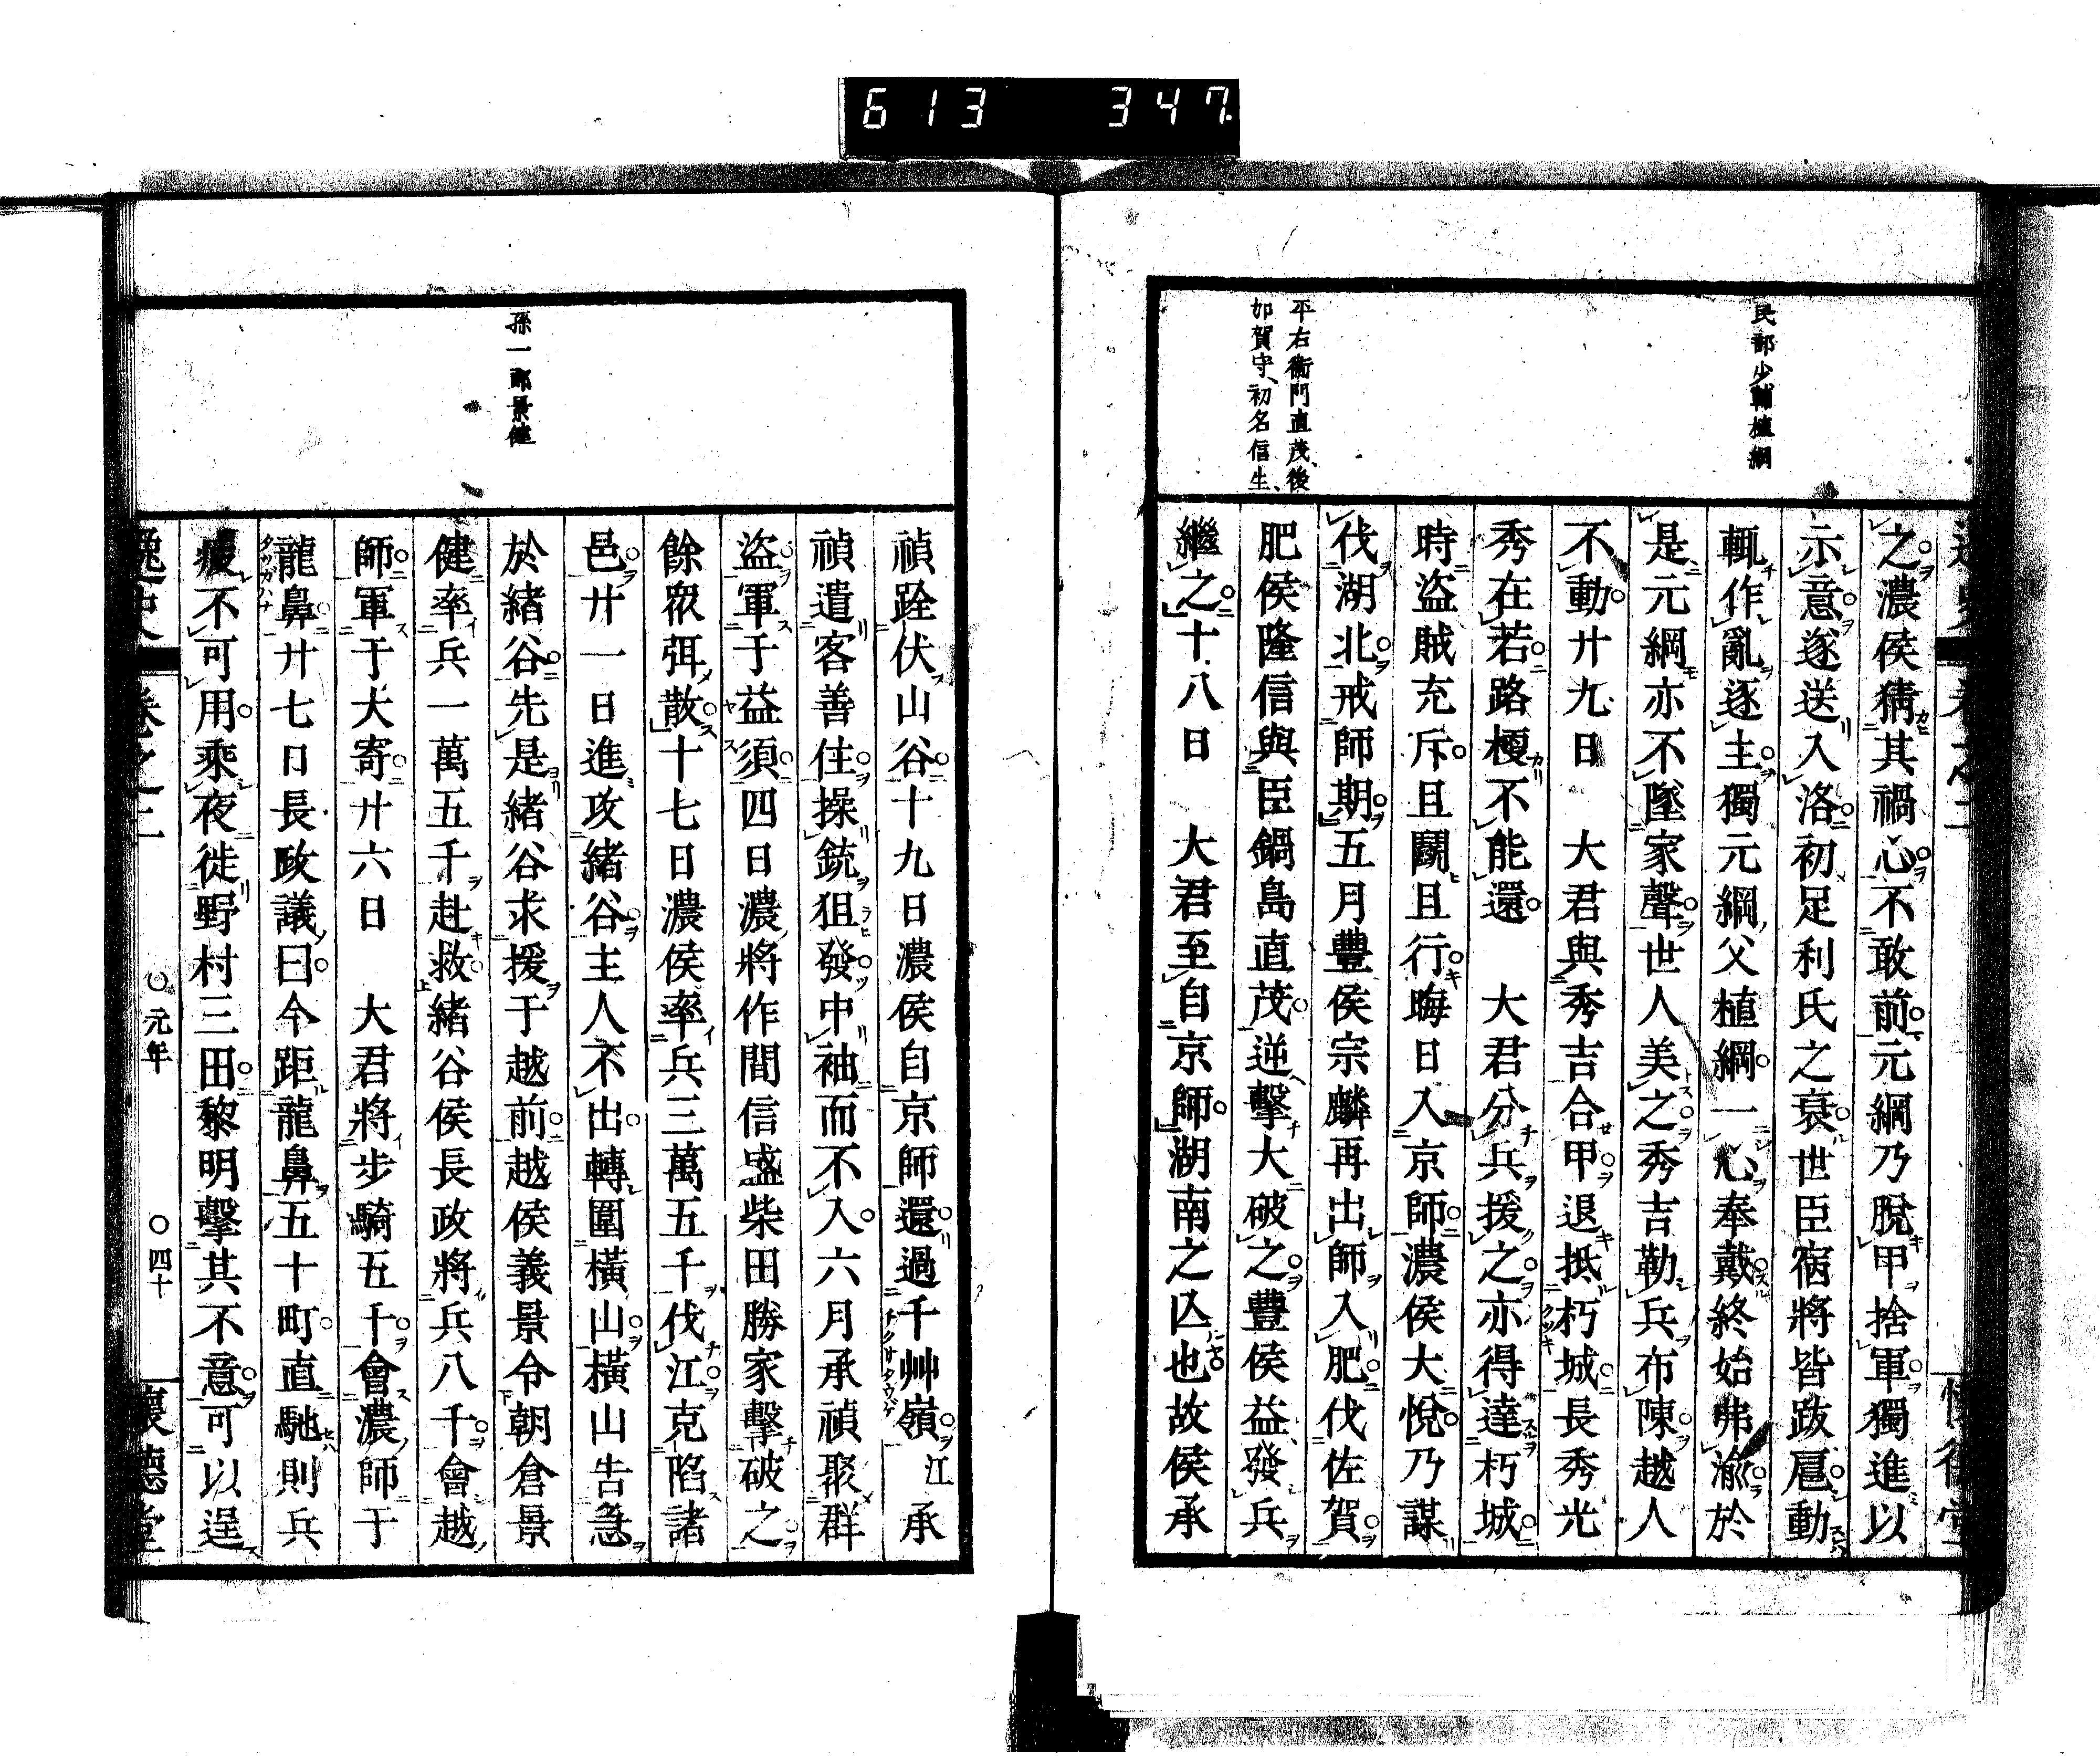 613 347
民部少輔植綱
平右衞門直茂、後
加賀守、初名信生、
之濃侯猜其禍心不敢前元綱乃脫甲捨軍獨進以
示意遂送入洛初足利氏之衰世臣宿將皆跋扈動
輒作亂逐主獨元綱父植綱一心奉戴終始弗渝於
是元綱亦不墜家聲世人美之秀吉勒兵布陳越人
不動廿九日 大君與秀吉合甲退抵朽城長秀光
秀在若路梗不能還 大君分兵援之亦得達朽城
時盜賊充斥且鬭且行晦日入京師濃侯大悅乃謀
伐湖北戒師期五月豐侯宗麟再出師入肥伐佐賀
肥侯隆信與臣鍋島直茂逆擊大破之豐侯益發兵
繼之十八日 大君至自京師湖南之亾也故侯承
孫一郎景健
禎跧伏山谷十九日濃侯自京師還過千艸嶺江承
禎遣客善住操銃狙發中袖而不入六月承禎聚群
盜軍于益須四日濃將作間信盛柴田勝家擊破之
餘眾弭散十七日濃侯率兵三萬五千伐江克陷諸
邑廿一日進攻緒谷主人不出轉圍橫山橫山告急
於緒谷先是緒谷求援于越前越侯義景令朝倉景
健率兵一萬五千赴救緒谷侯長政將兵八千會越
師軍于大寄廿六日 大君將步騎五千會濃師于
龍鼻廿七日長政議曰今距龍鼻五十町直馳則兵
疲不可用乘夜徙野村三田黎明擊其不意可以逞
逸史 卷之二 ○元年 ○四十 懷德堂